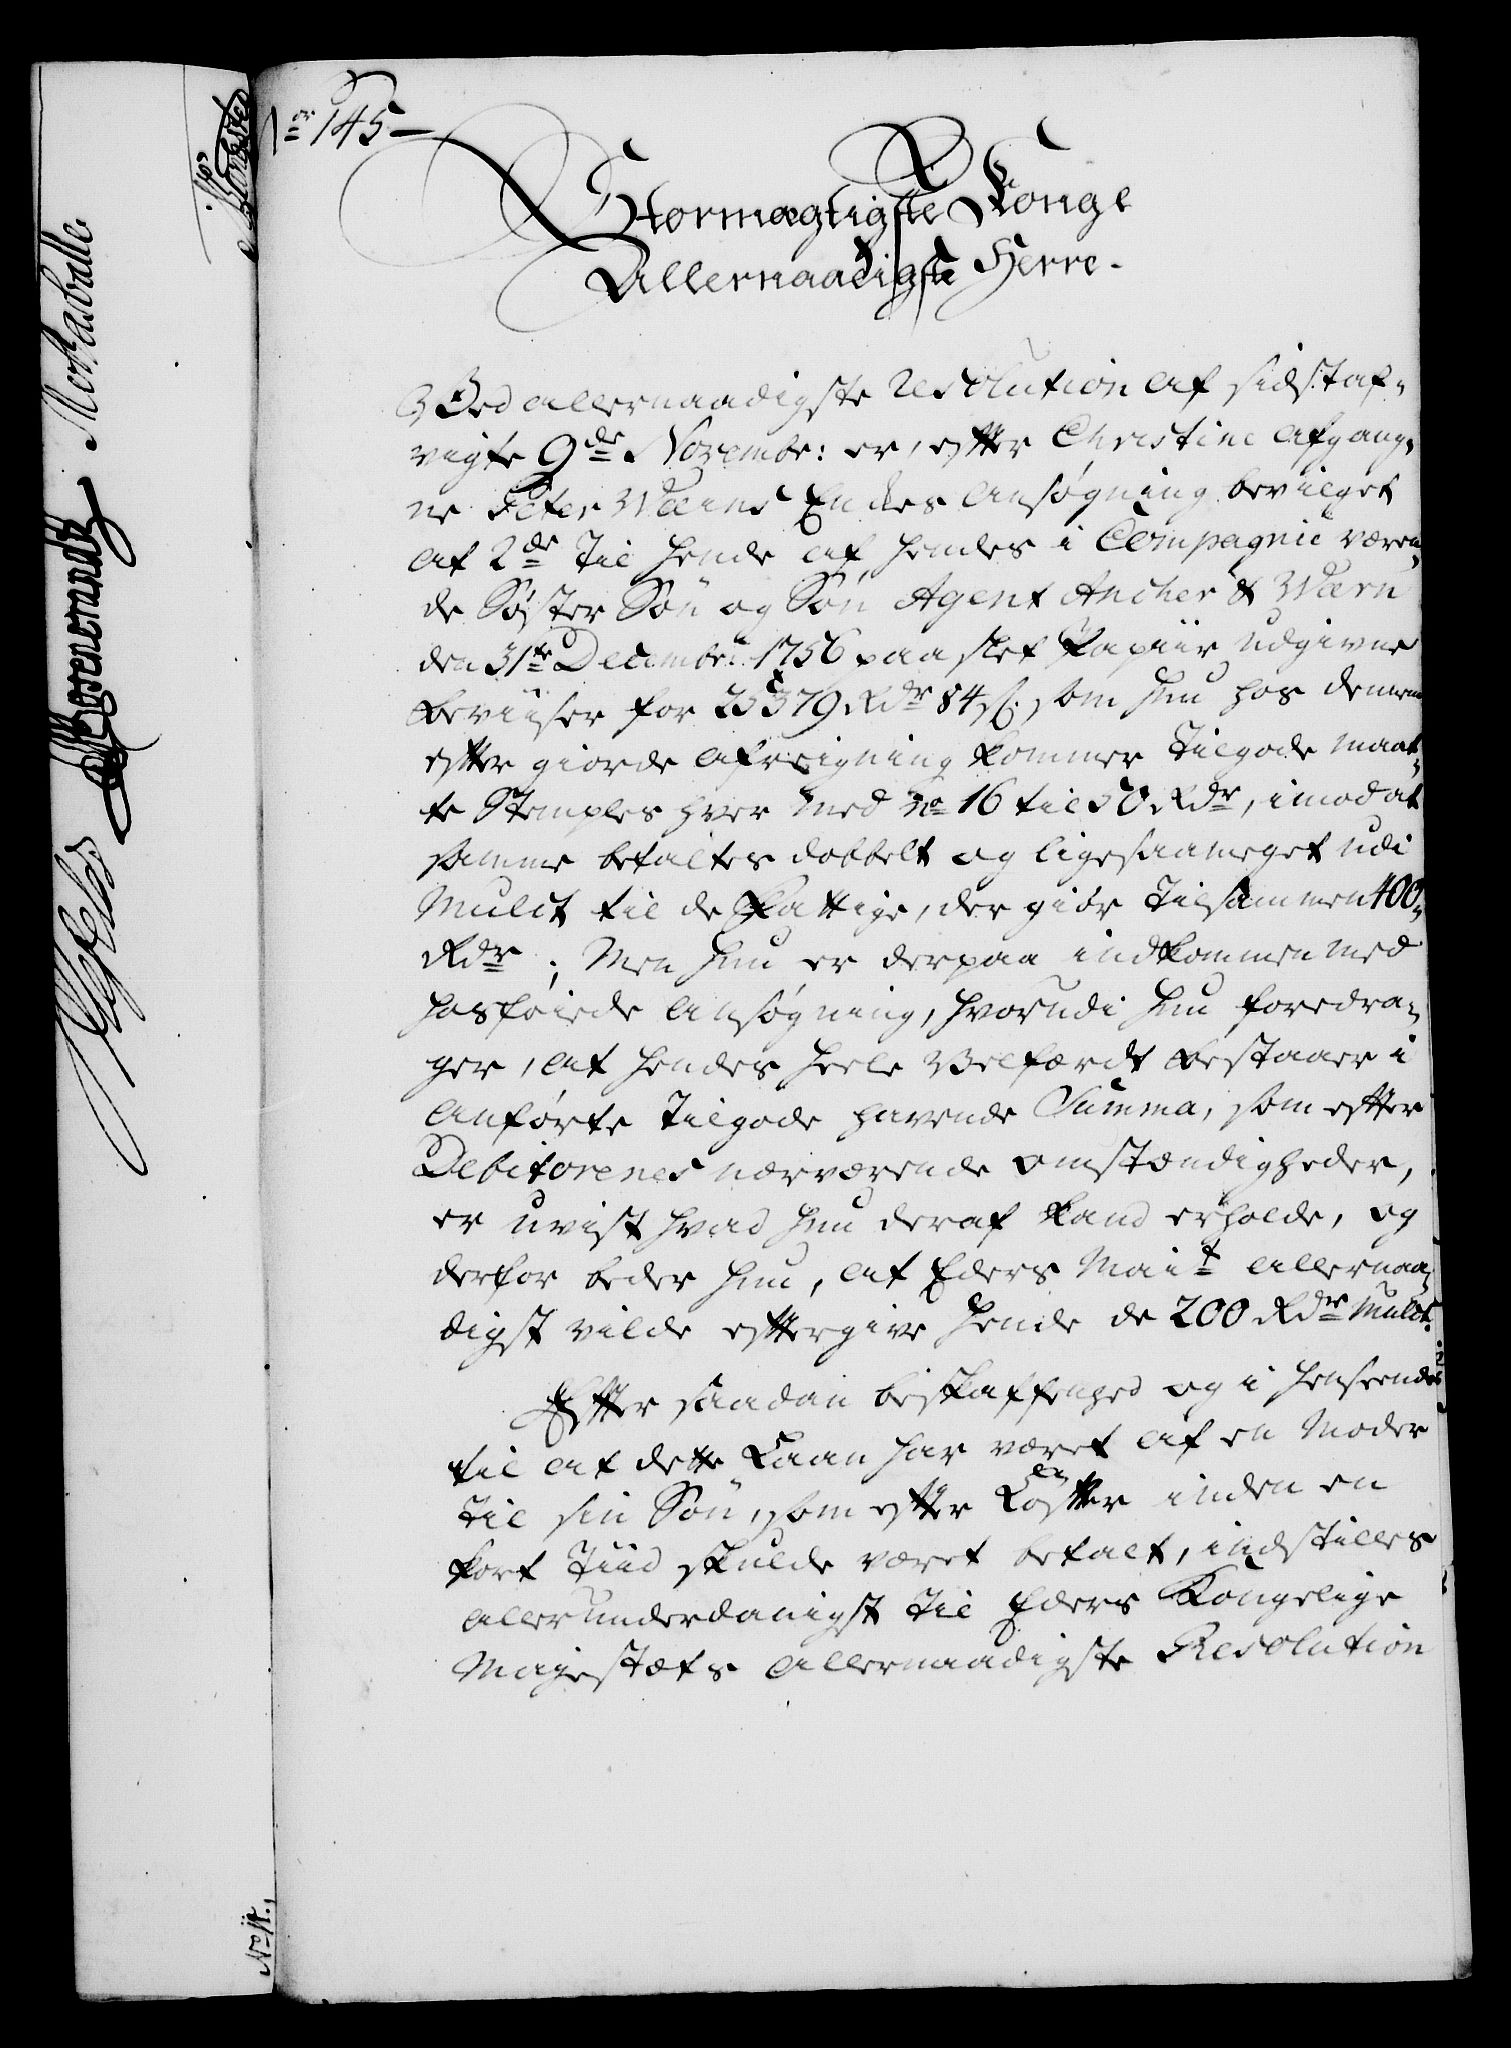 145
Stormægtigste Konge
Allernaadigste Herre.
Ved allernaadigste Resolution af sidst af-
vigte 9de Novembr: er, efter Christine afgang-
ne Peter Wærns Enkes Ansøgning bevilget
at 2de til hende af hendes i Compagnie væren-
de Søster Søn og Søn Agent Ancher & Wærn
den 31te Decembr: 1756 paa slet Papiir udgivne
Beviiser for 25379 Rdr 84 s. som hun hos dennem
efter giorde Afreigning kommer tilgode maat-
te Stemples hver med No 16 til 50 Rdr, imod at
samme betaltes dobbelt og ligesaameget udi
Mulct til de Fattige, der giør tilsammen 400
Rdr; Men hun er derpaa indkommen med
hosføiede Ansøgning, hvorudi hun foredra-
ger, at hendes heele Velfærdt bestaaer i
anførte tilgode havende Summa, som efter
Debitorenes nærværende omstændigheder,
er uvist hvad hun deraf kand erholde, og
derfor beder hun, at Eders Mait allernaa-
digst vilde eftergive hende de 200 Rdr Mulct.
Efter saadan beskaffenhed og i henseende
til at dette Laan har været af en Moder
til sin Søn, som efter Løfter inden en
kort Tiid skulde været betalt, indstilles
allerunderdanigst til Eders Kongelige
Majestæts allernaadigste Resolution